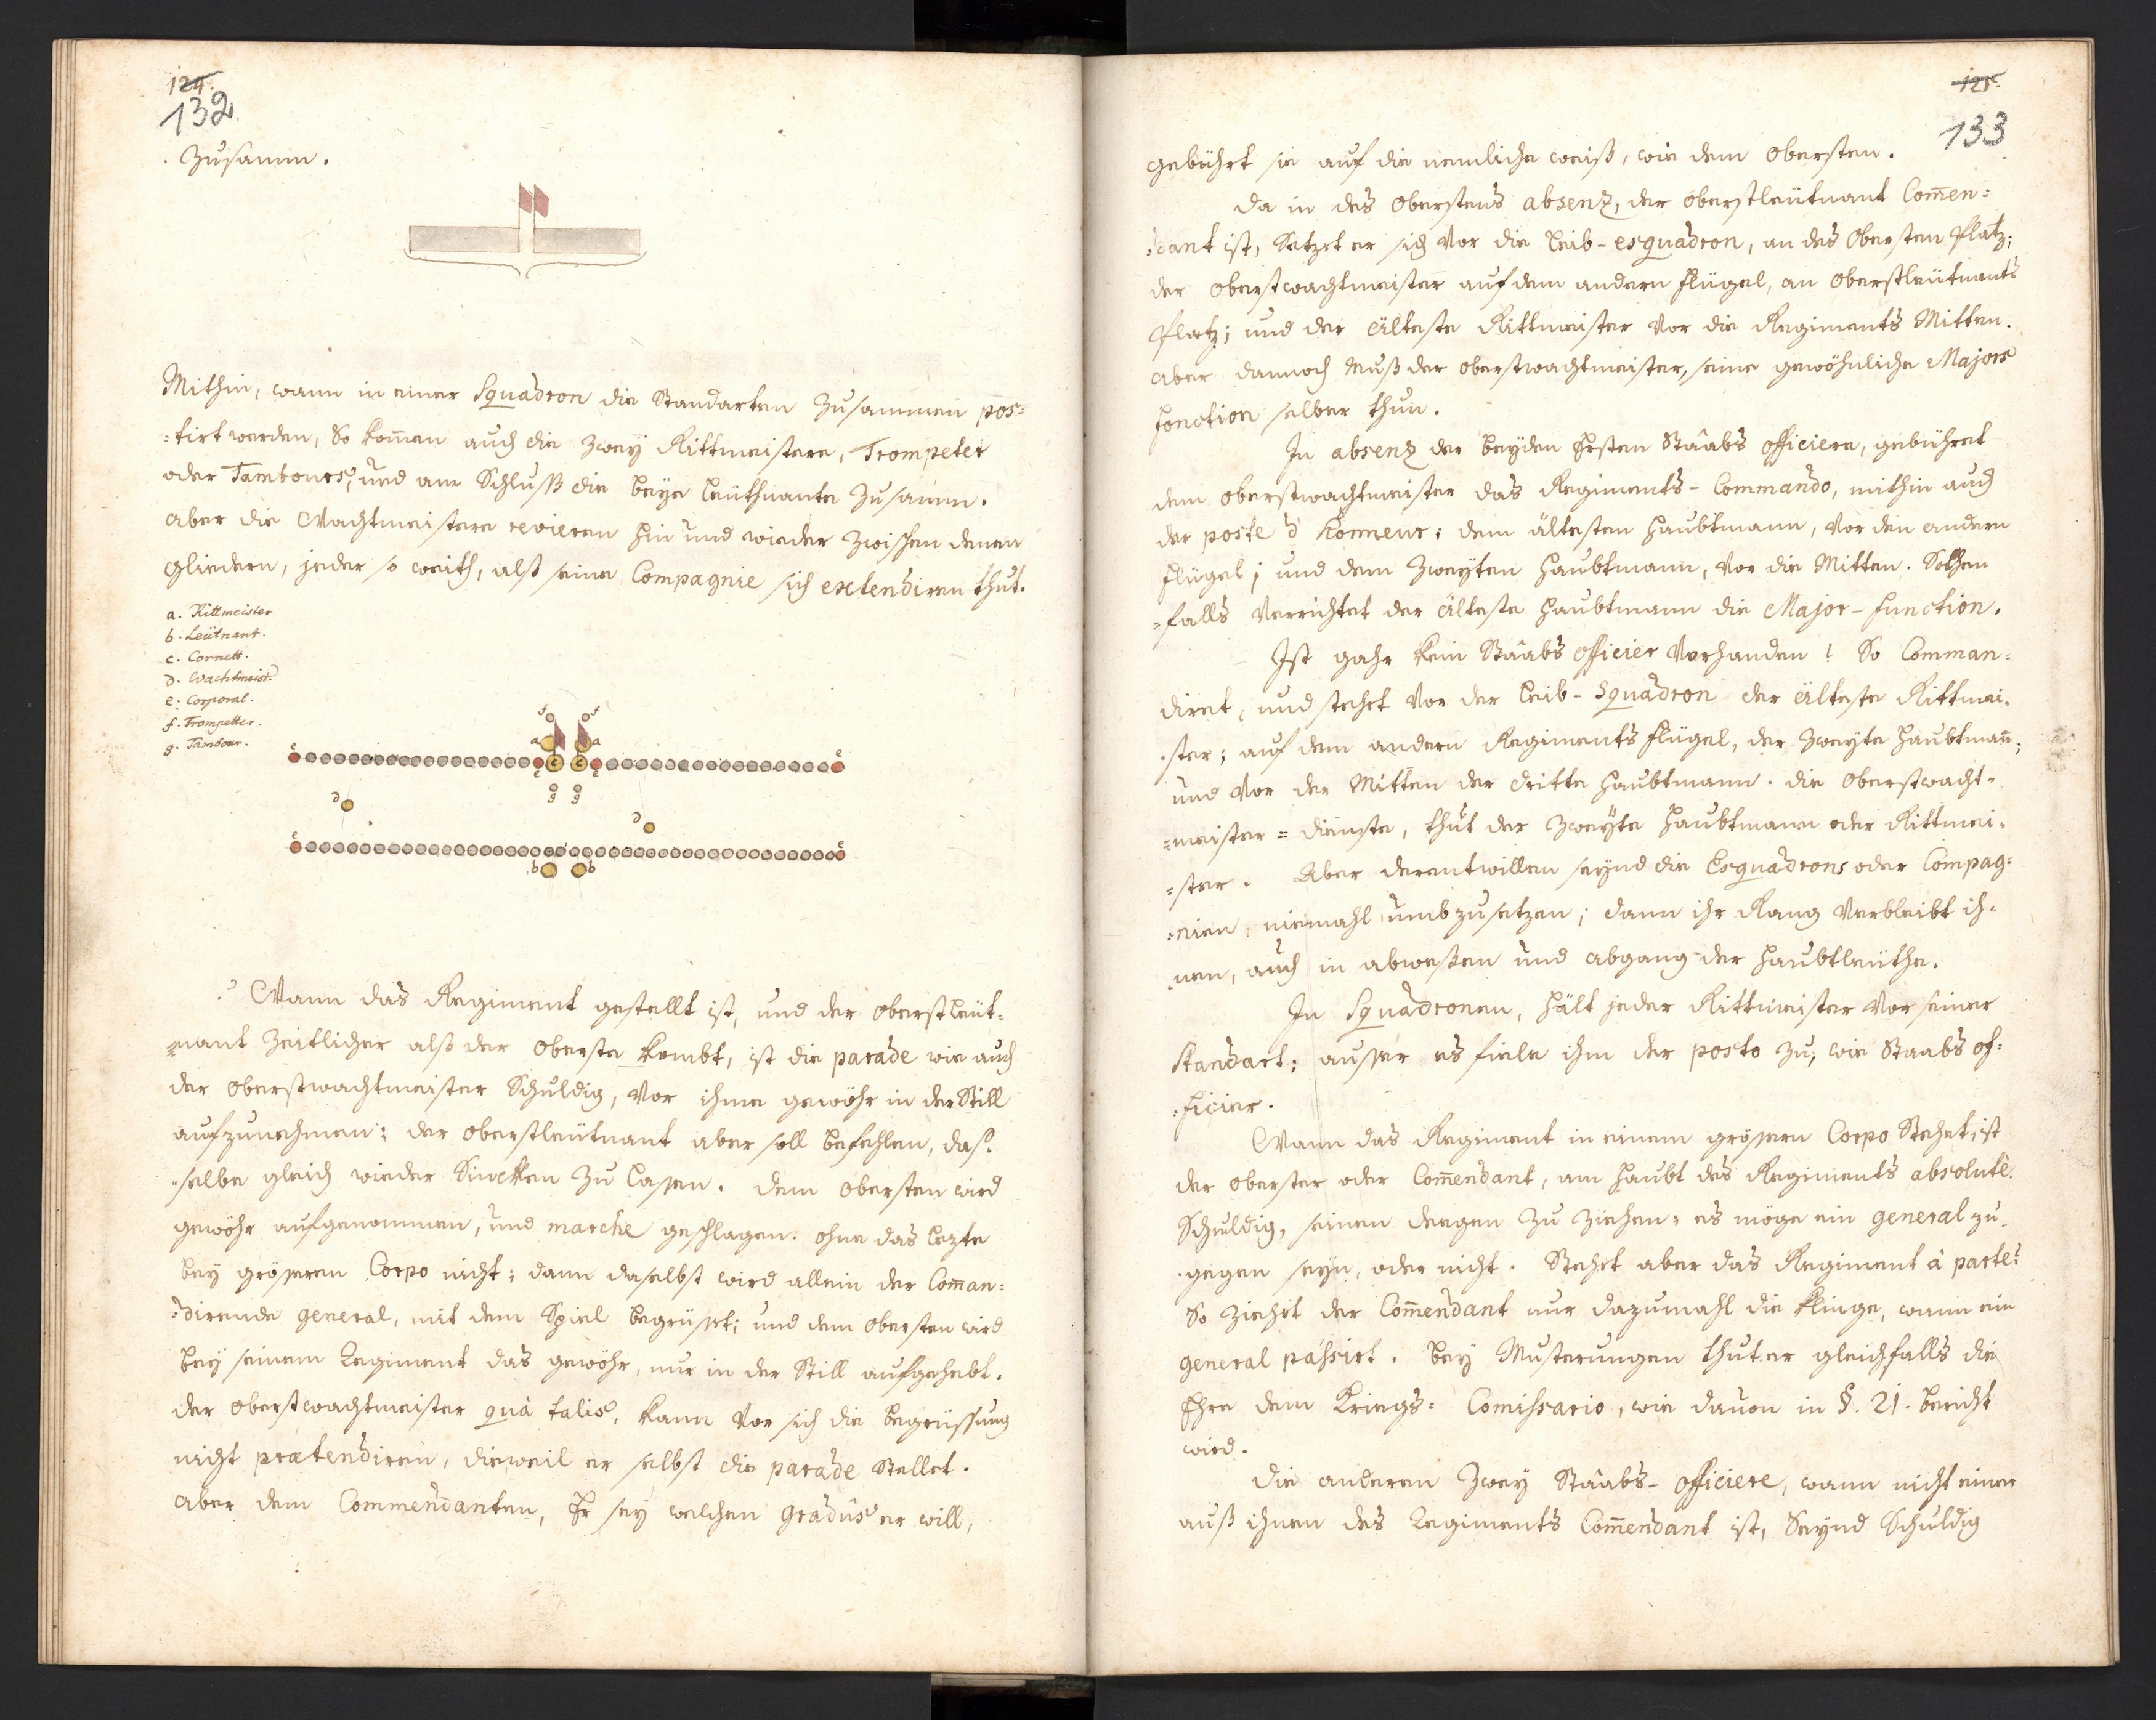 124.
132
Zusamm.
Mithin, wann in einer Squadron die Standarten Zusammen pos=
=tirt werden, So komen auch die zwey Rittmeistere, Trompeter
oder Tambours, und am Schluß die beye Leüthnante Zusamm.
aber die Wachtmeistere revieren hin und wieder zwischen denen
gliedern, jeder so weith, alß seine Compagnie sich extendiren thut.
a. Rittmeister
b. Leütnant.
c. Cornett.
d. Wachtmeist.
e. Corporal.
f. Trompetter.
g. Tambour.
f f
a a
e c c e e e
g g
d
d
e e
b b
Wann das Regiment gestellt ist, und der Oberstleüt=
=nant Zeitlicher alß der Oberste kombt, ist die parade wie auch
der Oberstwachtmeister Schuldig, Vor ihme gewöhr in der Still
aufzunehmen; der Oberstleütnant aber soll befehlen, das=
=selbe gleich wieder Sincken zu lassen. dem Obersten wird
gewöhr aufgenommen, und marche geschlagen: ohne das lezte
bey grösseren Corpo nicht; dann daselbst wird allein der Coman=
=dirende general, mit dem Spiel begrüsset; und dem Obersten wird
bey seinem Regiment das gewöhr, nur in der Still aufgehebt.
der Oberstwachtmeister quà talis, kann Vor sich die begrüssung
nicht prætendiren, dieweil er selbst die parade Stellet.
aber dem Commendanten, Er sey welchen gradûs er will,
125.
133
gebührt sie auf die nemliche weiß, wie dem Obersten.
da in des Obersten's absenz, der Oberstleütnant Comen=
=dant ist, Setzet er sich Vor die Leib-esquadron, an des Obersten Platz;
der Oberstwachtmeister auf dem andern flügel, an Oberstleütnants
Platz; und der älteste Rittmeister Vor die Regiments Mitten.
aber dannoch muß der Oberstwachtmeister, seine gewöhnliche Majors
fonction selber thun.
In absenz der beyden Ersten Staabs officiere, gebühret
dem Oberstwachtmeister das Regiments-Commando, mithin auch
der poste d'Honneur; dem ältesten Haubtmann, Vor den andern
flügel; und dem Zweyten Haubtmann, Vor die Mitten. Solchen
=falls Verrichtet der älteste Haubtmann die Major-function.
Ist gahr kein Staabs officier Vorhanden! So Comman=
diret, und stehet Vor der Leib-Squadron der älteste Rittmei=
=ster; auf dem andern Regiments flügel, der Zweyte Haubtman;
und Vor der Mitten der dritte Haubtmann. die Oberstwacht=
=meister=dienste, thut der Zweyte Haubtmann oder Rittmei=
=ster. Aber derentwillen seynd die Esquadrons oder Compag=
=nien, niemahl umbzusetzen; dann ihr Rang Verbleibt ih=
nen, auch in abweßen und abgang der Haubtleüthe.
In Squadronen, hält jeder Rittmeister Vor seiner
Standart; ausser es fiele ihm der posto zu, wie Staabs of=
=ficier.
Wann das Regiment in einem grössern Corpo Stehet, ist
der Oberster oder Comendant, am Haubt des Regiments absolutè
Schuldig, seinen deegen zu ziehen; es möge ein general zu=
=gegen seyn, oder nicht. Stehet aber das Regiment à parte?
So ziehet der Comendant nur dazumahl die Klinge, wann ein
general passirt. bey Musterungen thut er gleichfalls die
Ehre dem Kriegs=Comissario, wie dauon in §. 21. bericht
wird.
die anderen Zwey Staabs-officiere, wann nicht einer
auß ihnen des Regiments Comendant ist, Seynd Schuldig